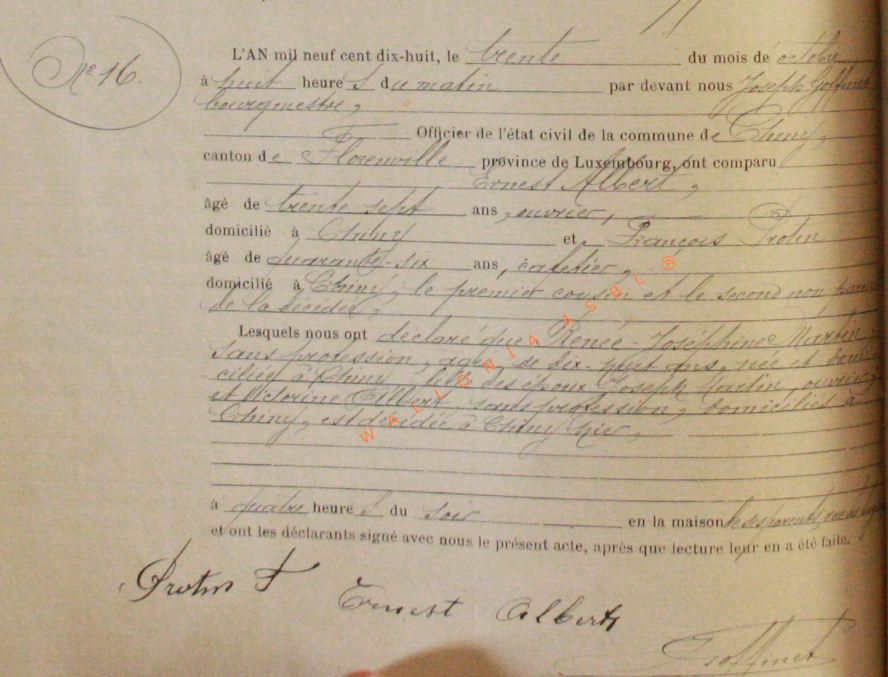 Nº 16.
L'AN mil neuf cent dix-huit, le trente du mois de octobre
à huit heure s du matin par devant nous Joseph Goffinet
bourgmestre,
Officier de l'état civil de la commune de Chiny,
canton de Florenville province de Luxembourg, ont comparu
Ernest Albert,
âgé de trente sept ans, ouvrier,
domicilié à Chiny et François Protin
âgé de quarante-six ans, cafetier,
domicilié à Chiny, le premier cousin et le second non parent
de la décédée,
Lesquels nous ont déclaré que Renée-Joséphine Martin,
sans profession, agée de dix-huit ans, née et domi-
ciliée à Chiny, fille des époux Joseph Martin, ouvrier,
et Victorine Albert, sans profession, domiciliés à
Chiny, est décédée à Chiny hier,
à quatre heure s du soir en la maison de ses parents,
et ont les déclarants signé avec nous le présent acte, après que lecture leur en a été faite.
Protin F
Ernest Albert
J Goffinet
WALLONIA ASBL ©